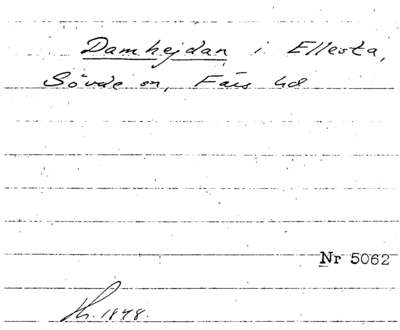 Damhejdan i Ellesta,
Sövde sn, Färs hd
Nr 5062
1848.